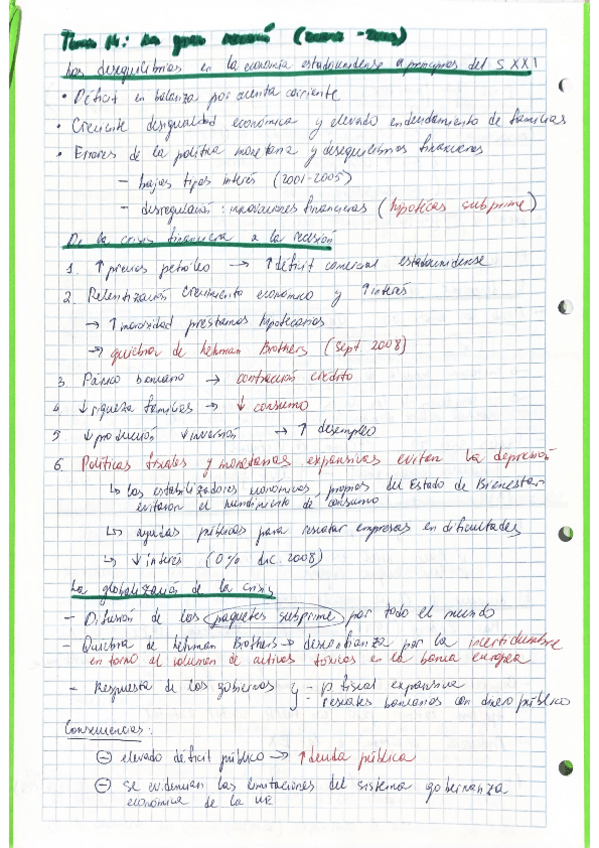 Tema 14: La gran recesión (
Los desequilibrios en la economía estadounidense a principios del S XXI
• Déficit en balanza por cuenta corriente
• Creciente desigualdad económica y elevado endeudamiento de familias
• Errores de la política monetaria y desequilibrios financieros
– bajos tipos interés (2001-2005)
– desregulación: innovaciones financieras (hipotecas subprime)
De la crisis financiera a la recesión
1. ↑ precios petróleo → ↑ déficit comercial estadounidense
2. Relentización crecimiento económico y ↑ interés
→ ↑ morosidad préstamos hipotecarios
→ quiebra de Lehman Brothers (sept. 2008)
3. Pánico bancario → contracción crédito
4. ↓ riqueza familias → ↓ consumo
5. ↓ producción ↓ inversión → ↑ desempleo
6. Políticas fiscales y monetarias expansivas evitan la depresión
↳ los estabilizadores económicos propios del Estado de Bienestar
evitaron el hundimiento de consumo
↳ ayudas públicas para rescatar empresas en dificultades
↳ ↓ interés (0% dic. 2008)
La globalización de la crisis
– Difusión de los paquetes subprime por todo el mundo
– Quiebra de Lehman Brothers → desconfianza por la incertidumbre
en torno al volumen de activos tóxicos en la banca europea
– Respuesta de los gobiernos { – p. fiscal expansiva
– rescates bancarios con dinero público
Consecuencias:
⊖ elevado déficit público → ↑ deuda pública
⊖ se evidencian las limitaciones del sistema gobernanza
económica de la UE